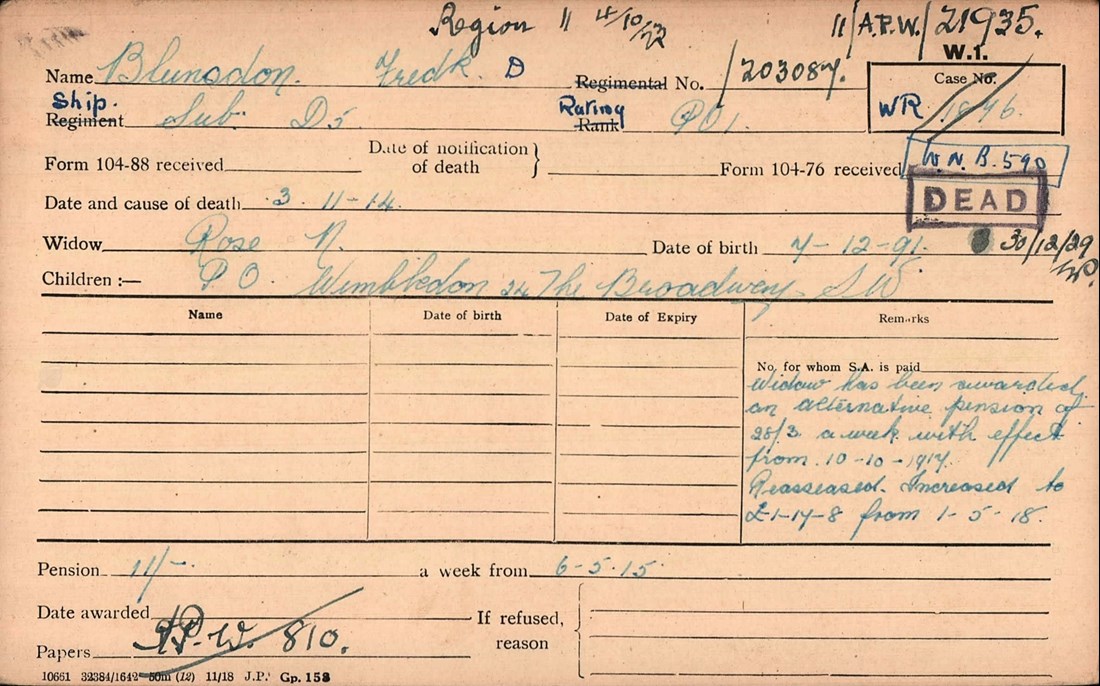 Region 11 4/10/22
11/A.P.W./21935.
W.1.
Name Blunsdon. Fredk. D Regimental No. /203087.
Case No.
WR 1896.
Ship.
Regiment Sub. D5 Rating Rank PO1.
W.N.B. 590
Form 104-88 received Date of notification of death } Form 104-76 received
DEAD
Date and cause of death 3. 11-14.
Widow Rose N. Date of birth 7-12-91. 30/12/29
Children :— P.O. Wimbledon 24 The Broadway SW
Name Date of birth Date of Expiry Remarks
No. for whom S.A. is paid
Widow has been awarded
an alternative pension of
28/3 a week with effect
from 10-10-1917.
Reassessed. Increased to
£1-17-8 from 1-5-18.
Pension 11/- a week from 6-5-15
Date awarded
If refused,
reason
Papers A.P.W. 810.
10661 32384/1642 50m (12) 11/18 J.P. Gp. 153